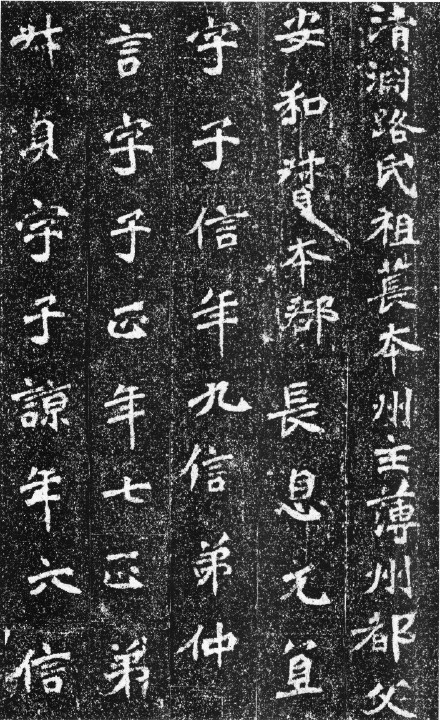 清淵路氏祖萇本州主薄州都父
安和本郡長息元直
字子信年九信弟仲
言字子正年七正弟
叔貞字子諒年六信